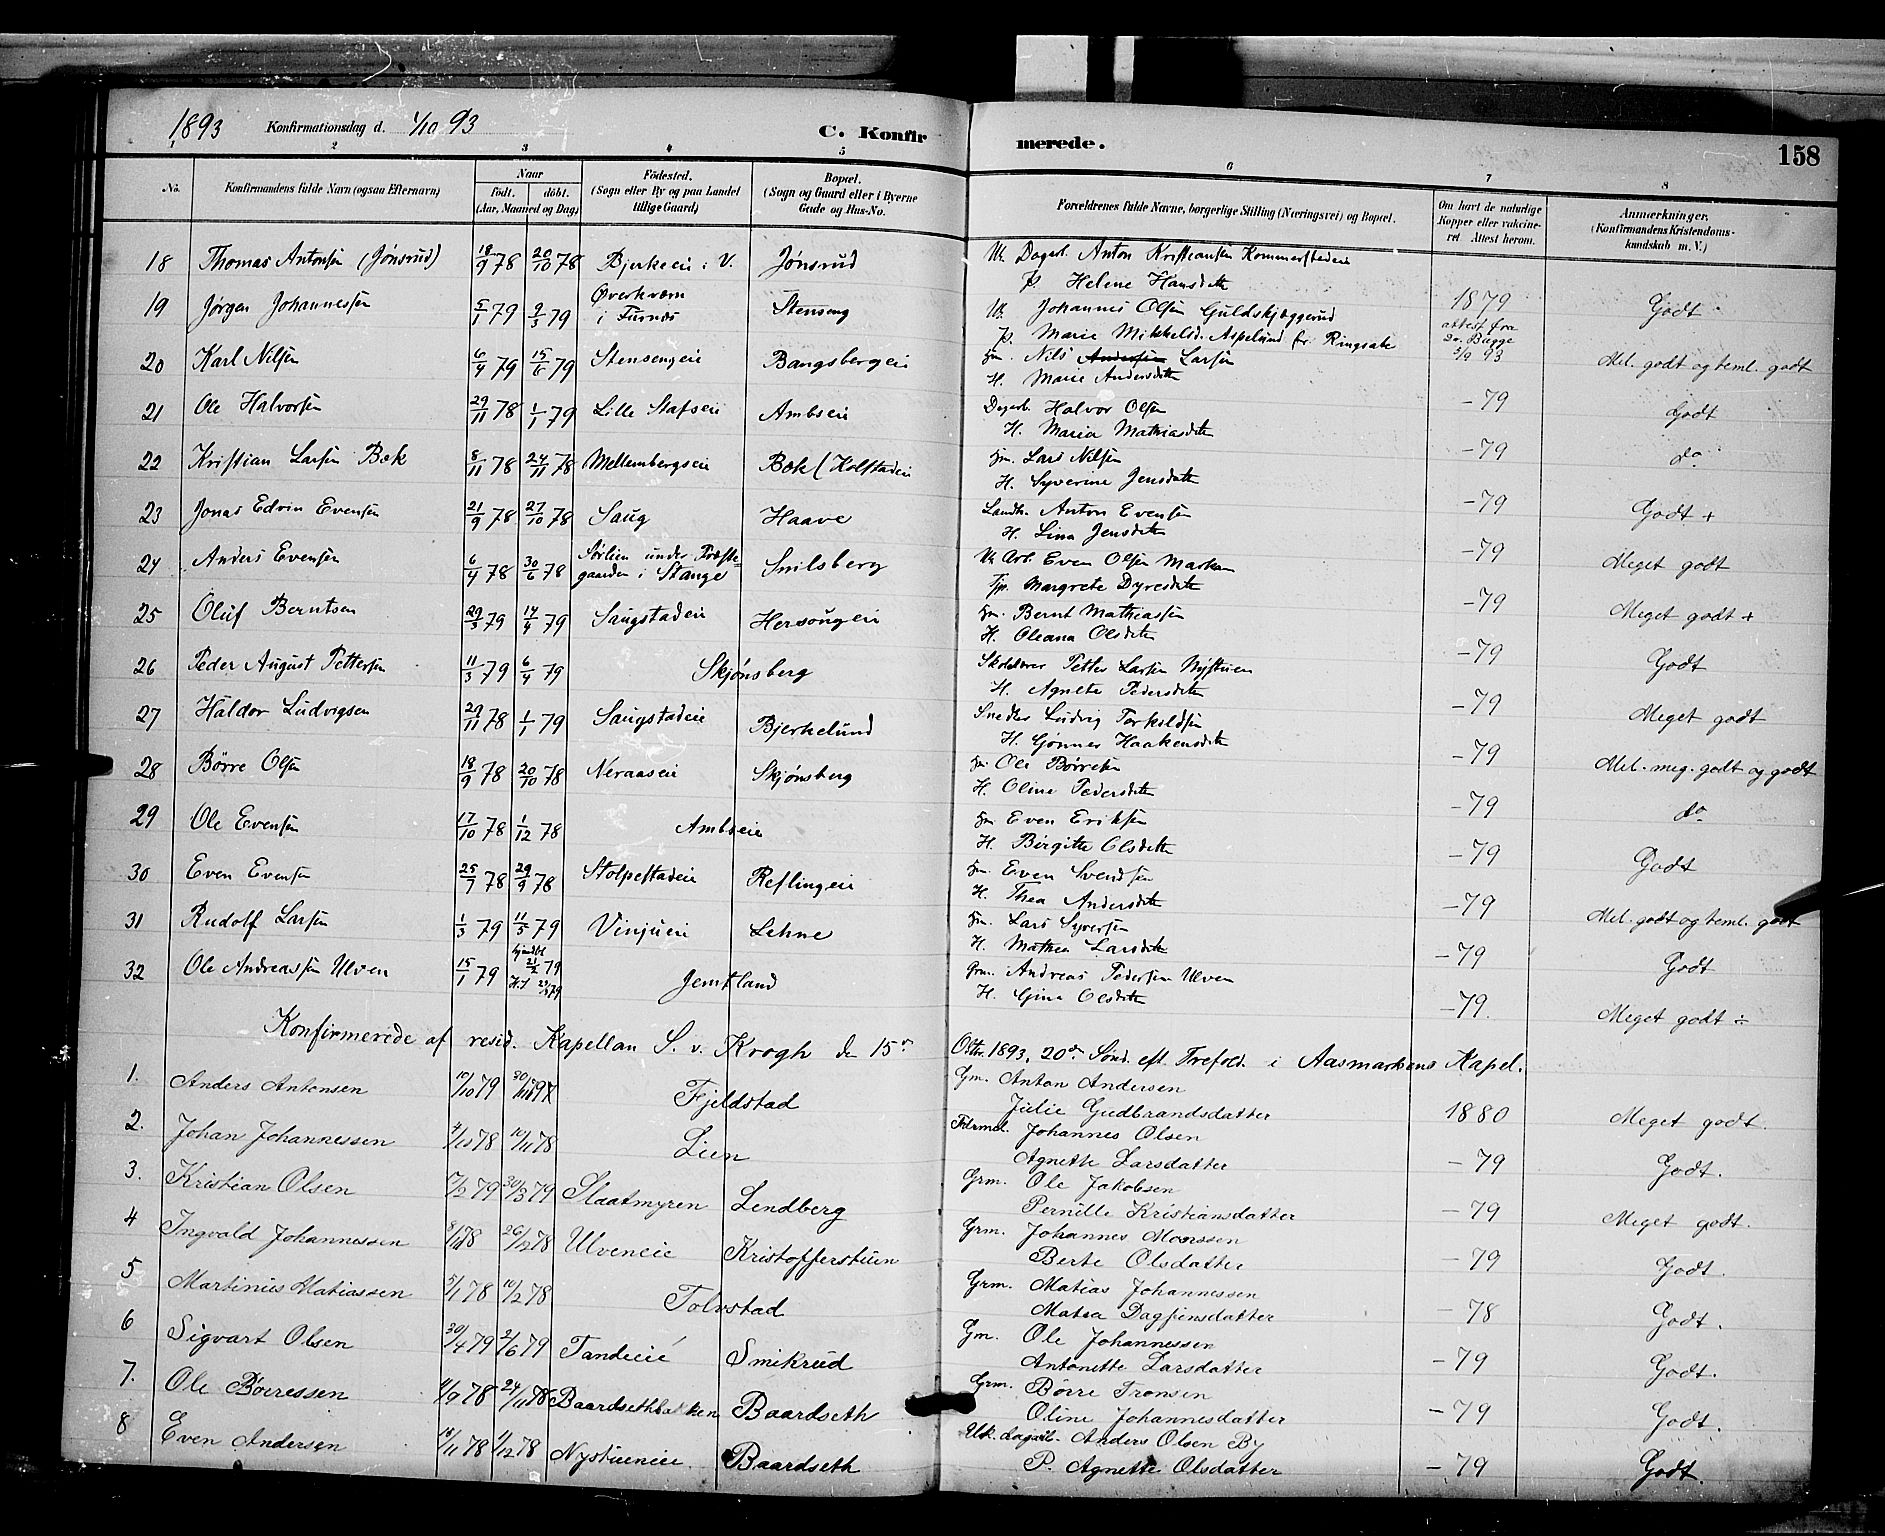 1893 Konfirmationsdag d. 1/10 93 C. Konfirmerede. 158
No.
2 Konfirmandens fulde Navn (ogsaa Efternavn)
3 Naar født. døbt. (Aar, Maaned og Dag)
4 Fødested. (Sogn eller By og paa Landet tillige Gaard)
5 Bopæl. (Sogn og Gaard eller i Byerne Gade og Hus-No.
6 Forældrenes fulde Navne, borgerlige Stilling (Næringsvei) og Bopæl.
7 Om havt de naturlige Kopper eller vakcineret Attest herom.
8 Anmærkninger. (Konfirmandens Kristendomskundskab m. V.)
18 Thomas Antonsen (Jønsrud) 18/9 78 20/10 78 Bjerkeeie i V. Jønsrud Uk. Dagarb. Anton Kristiansen Kommerstadeie
P. Helene Hansdtr 1879 Godt
19 Jørgen Johannessen 5/1 79 2/3 79 Øverkværn i Furnæs Stenseng Uk. Johannes Olsen Guldskjæggerud
P. Marie Mikkelsd. Aspelund fr. Ringsaker attest fra Dr. Bugge 5/9 93 Mel. godt og teml. godt
20 Karl Nilsen 6/4 79 15/6 79 Stensengeie Bangsbergeie Gm. Nils Andersen Larsen
H. Marie Andersdtr -79 Godt
21 Ole Halvorsen 29/11 78 1/1 79 Lille Stafseie Ambseie Dagarb. Halvor Olsen
H. Maria Mathiasdtr -79 do
22 Kristian Larsen Bæk 8/11 78 24/11 78 Mellembergseie Bæk (Kolstadeie Gm. Lars Nilsen
H. Syverine Jensdatter -79 Godt +
23 Jonas Edvin Evensen 21/9 78 27/10 78 Saug Haave Landh. Anton Evensen
H. Lina Jensdatter -79 Meget godt
24 Anders Evensen 6/4 78 30/6 78 Sørlien under Præstegaarden i Stange Snilsberg Uk Arb. Even Olsen Marken
Tjp. Margrete Dyresdtr -79 Meget godt +
25 Oluf Berntsen 29/3 79 14/4 79 Saugstadeie Hersougeie Gm. Bernt Mathiassen
H. Oleana Olsdatter -79 Godt
26 Peder August Pettersen 11/3 79 6/4 79 Skjønsberg Skolelærer Petter Larsen Nystuen
H. Agnete Pedersdtr -79 Meget godt
27 Haldor Ludvigsen 29/11 78 1/1 79 Saugstadeie Bjerkelund Snedker Ludvig Torkildsen
H. Gønner Haakensdtr -79 Mel. meg. godt og godt
28 Børre Olsen 18/9 78 20/10 78 Neraaseie Skjønsberg Gm. Ole Børresen
H. Oline Pedersdtr -79 do
29 Ole Evensen 17/10 78 1/12 78 Ambseie Gm. Even Eriksen
H. Birgitte Olsdatter -79 Godt
30 Even Evensen 25/7 78 29/9 78 Stolpestadeie Reflingeie Gm. Even Svendsen
H. Thea Andersdtr -79 Mel. godt og teml. godt
31 Rudolf Larsen 1/3 79 11/5 79 Vinjueie Lehne Gm. Lars Syversen
H. Mathea Larsdtr -79 Godt
32 Ole Andreassen Ulven 15/1 79 hjmdbt 21/2 79 Jemtland Grm. Andreas Pedersen Ulven
H. Gina Olsdtr -79. Meget godt ÷
Konfirmerede af resid. Kapellan S. v. Krogh den 15de Oktbr. 1893, 20de Sönd. eft. Trefold. i Aasmarkens Kapel.
1. Anders Antonsen 10/10 79 30/11 79 Fjeldstad Gm. Anton Andersen
Julie Gudbrandsdatter 1880 Meget godt.
2. Johan Johannessen 4/10 78 10/11 78 Lien Johannes Olsen
Agnette Larsdatter -79 Godt.
3. Kristian Olsen 7/2 79 30/3 79 Slaatmyren Lendberg Grm. Ole Jakobsen
Pernille Kristiansdatter -79 Meget godt.
4 Ingvald Johannessen 26/12 78 Ulveneie Kristofferstuen Grm. Johannes Monssen
Berte Olsdatter -79 Godt.
5 Martinus Matiassen 5/1 78 10/2 78 Tolvstad Grm. Matias Johannessen
Matea Dagfinsdatter -78 Godt.
6 Sigvart Olsen 30/4 79 2/6 79 Tandeeie Smikrud Gm. Ole Johannessen
Antonette Larsdatter -79 Godt.
7. Ole Böerressen 4/9 78 24/11 78 Baardsethbakken Baardseth Grm. Börre Tronsen
Oline Johannesdatter -79 Godt.
8 Even Andersen 18/11 78 1/12 78 Nystueneie. Baardseth Uk. dagarb. Anders Olsen By
P. Agnette Olsdatter -79 Godt.